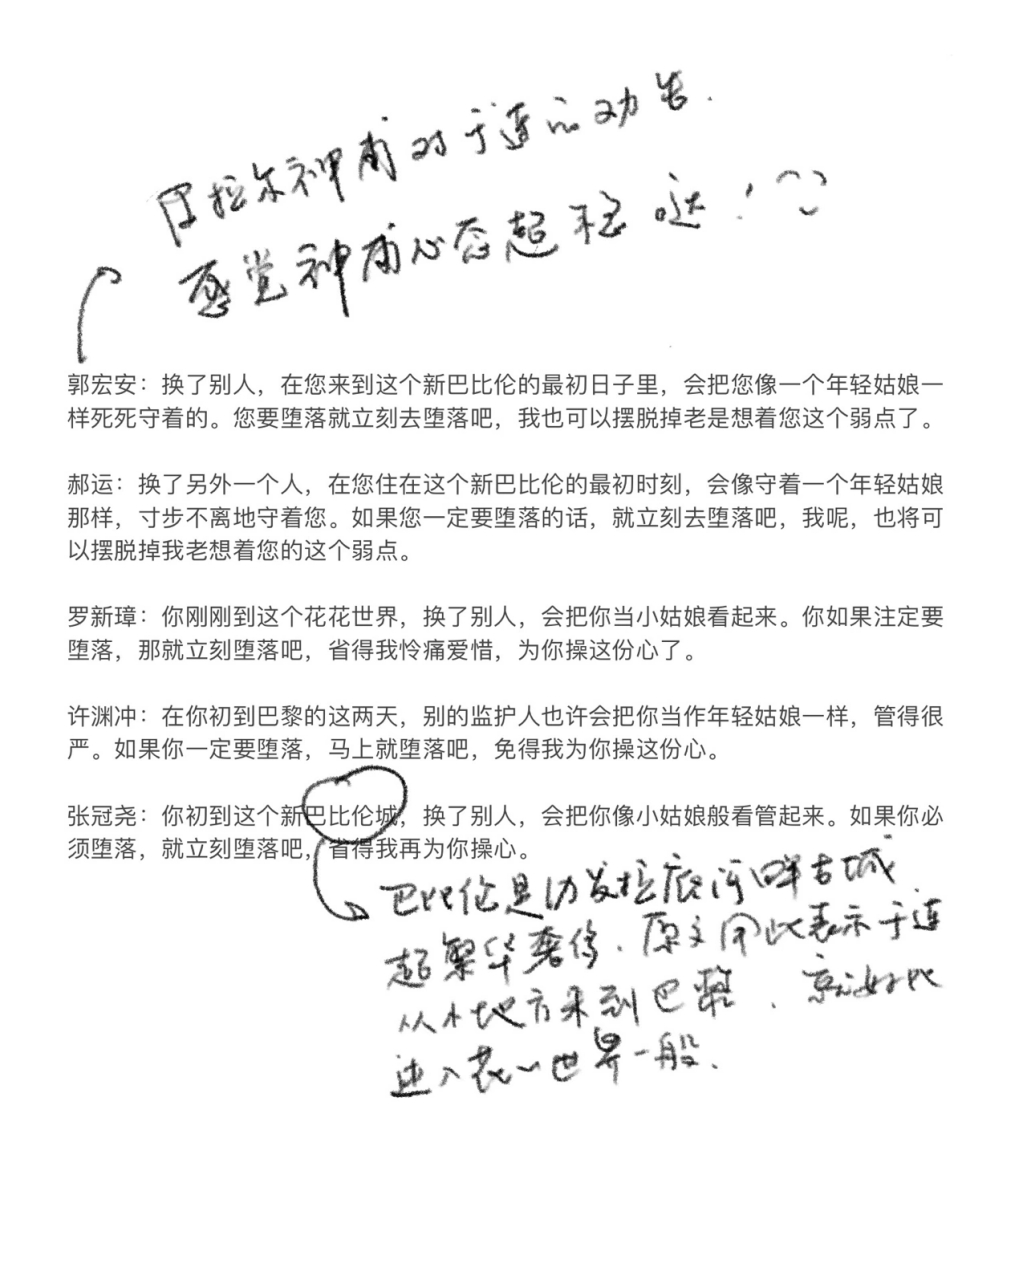 毕拉尔神甫对于连的劝告.
感觉神甫心态超稳哒！
郭宏安：换了别人，在您来到这个新巴比伦的最初日子里，会把您像一个年轻姑娘一
样死死守着的。您要堕落就立刻去堕落吧，我也可以摆脱掉老是想着您这个弱点了。
郝运：换了另外一个人，在您住在这个新巴比伦的最初时刻，会像守着一个年轻姑娘
那样，寸步不离地守着您。如果您一定要堕落的话，就立刻去堕落吧，我呢，也将可
以摆脱掉我老想着您的这个弱点。
罗新璋：你刚刚到这个花花世界，换了别人，会把你当小姑娘看起来。你如果注定要
堕落，那就立刻堕落吧，省得我怜痛爱惜，为你操这份心了。
许渊冲：在你初到巴黎的这两天，别的监护人也许会把你当作年轻姑娘一样，管得很
严。如果你一定要堕落，马上就堕落吧，免得我为你操这份心。
张冠尧：你初到这个新巴比伦城，换了别人，会把你像小姑娘般看管起来。如果你必
须堕落，就立刻堕落吧，省得我再为你操心。
巴比伦是幼发拉底河畔古城
超繁华奢侈．原文用此表示于连
从小地方来到巴黎．就好比
进入花〃世界一般．